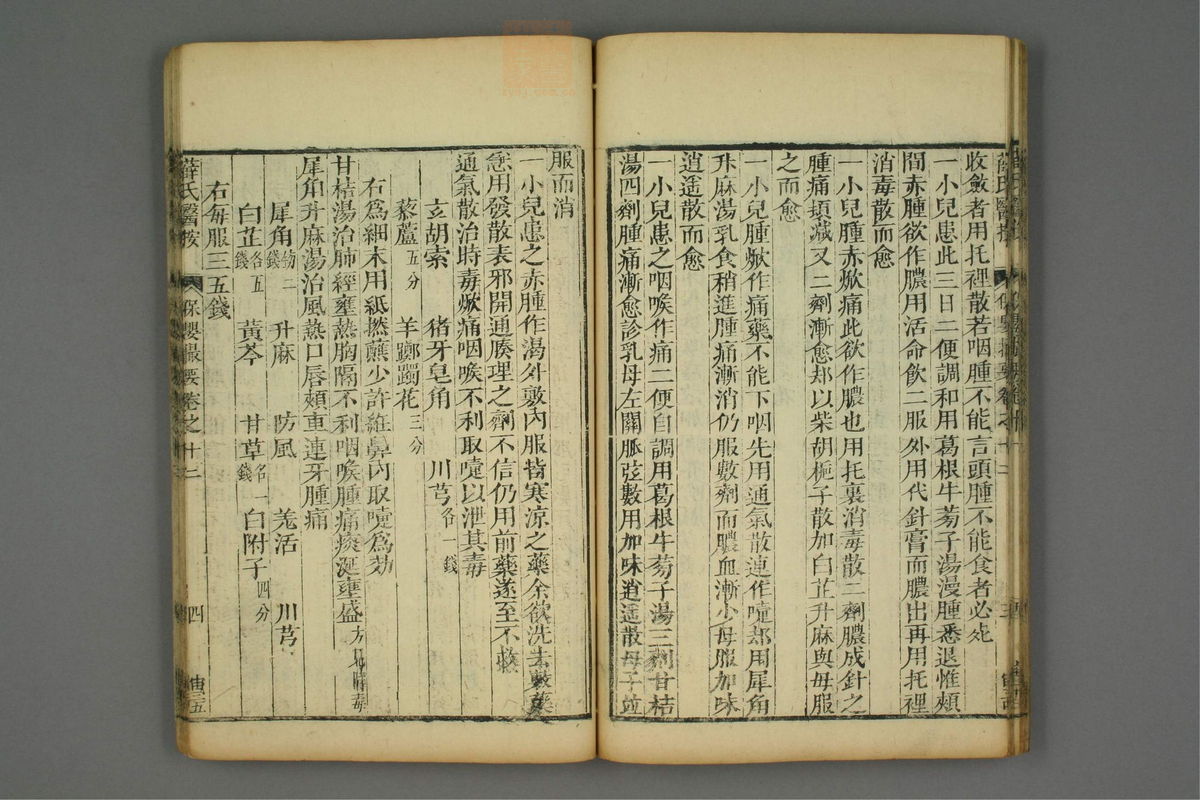 收斂者用托裡散若咽腫不能言頭腫不能食者必死
一小兒患此三日二便調和用葛根牛蒡子湯漫腫悉退惟頰
間赤腫欲作膿用活命飲二服外用代針膏而膿出再用托裡
消毒散而愈
一小兒腫赤焮痛此欲作膿也用托裏消毒散二劑膿成針之
腫痛頓減又二劑漸愈却以柴胡梔子散加白芷升麻與母服
之而愈
一小兒腫焮作痛藥不能下咽先用通氣散連作嚏却用犀角
升麻湯乳食稍進腫痛漸消仍服數劑而膿血漸少母服加味
逍遥散而愈
一小兒患之咽喉作痛二便自調用葛根牛蒡子湯三劑甘桔
湯四劑腫痛漸愈診乳母左關脈弦數用加味逍遥散母子並
服而消
一小兒患之赤腫作渴外敷內服皆寒涼之藥余欲洗去敷藥
急用發散表邪開通腠理之劑不信仍用前藥遂至不救
通氣散治時毒焮痛咽喉不利取嚏以泄其毒
玄胡索 猪牙皂角 川芎各一錢
藜蘆五分 羊躑躅花三分
右爲細末用紙撚蘸少許絍鼻內取嚏爲効
甘桔湯治肺經壅熱胸膈不利咽喉腫痛痰涎壅盛方見時毒
犀角升麻湯治風熱口唇頰車連牙腫痛
犀角鎊二錢 升麻 防風 羌活 川芎
白芷各五錢 黃芩 甘草各一錢 白附子四分
右每服三五錢
薛氏醫按 保嬰撮要卷之十二 四